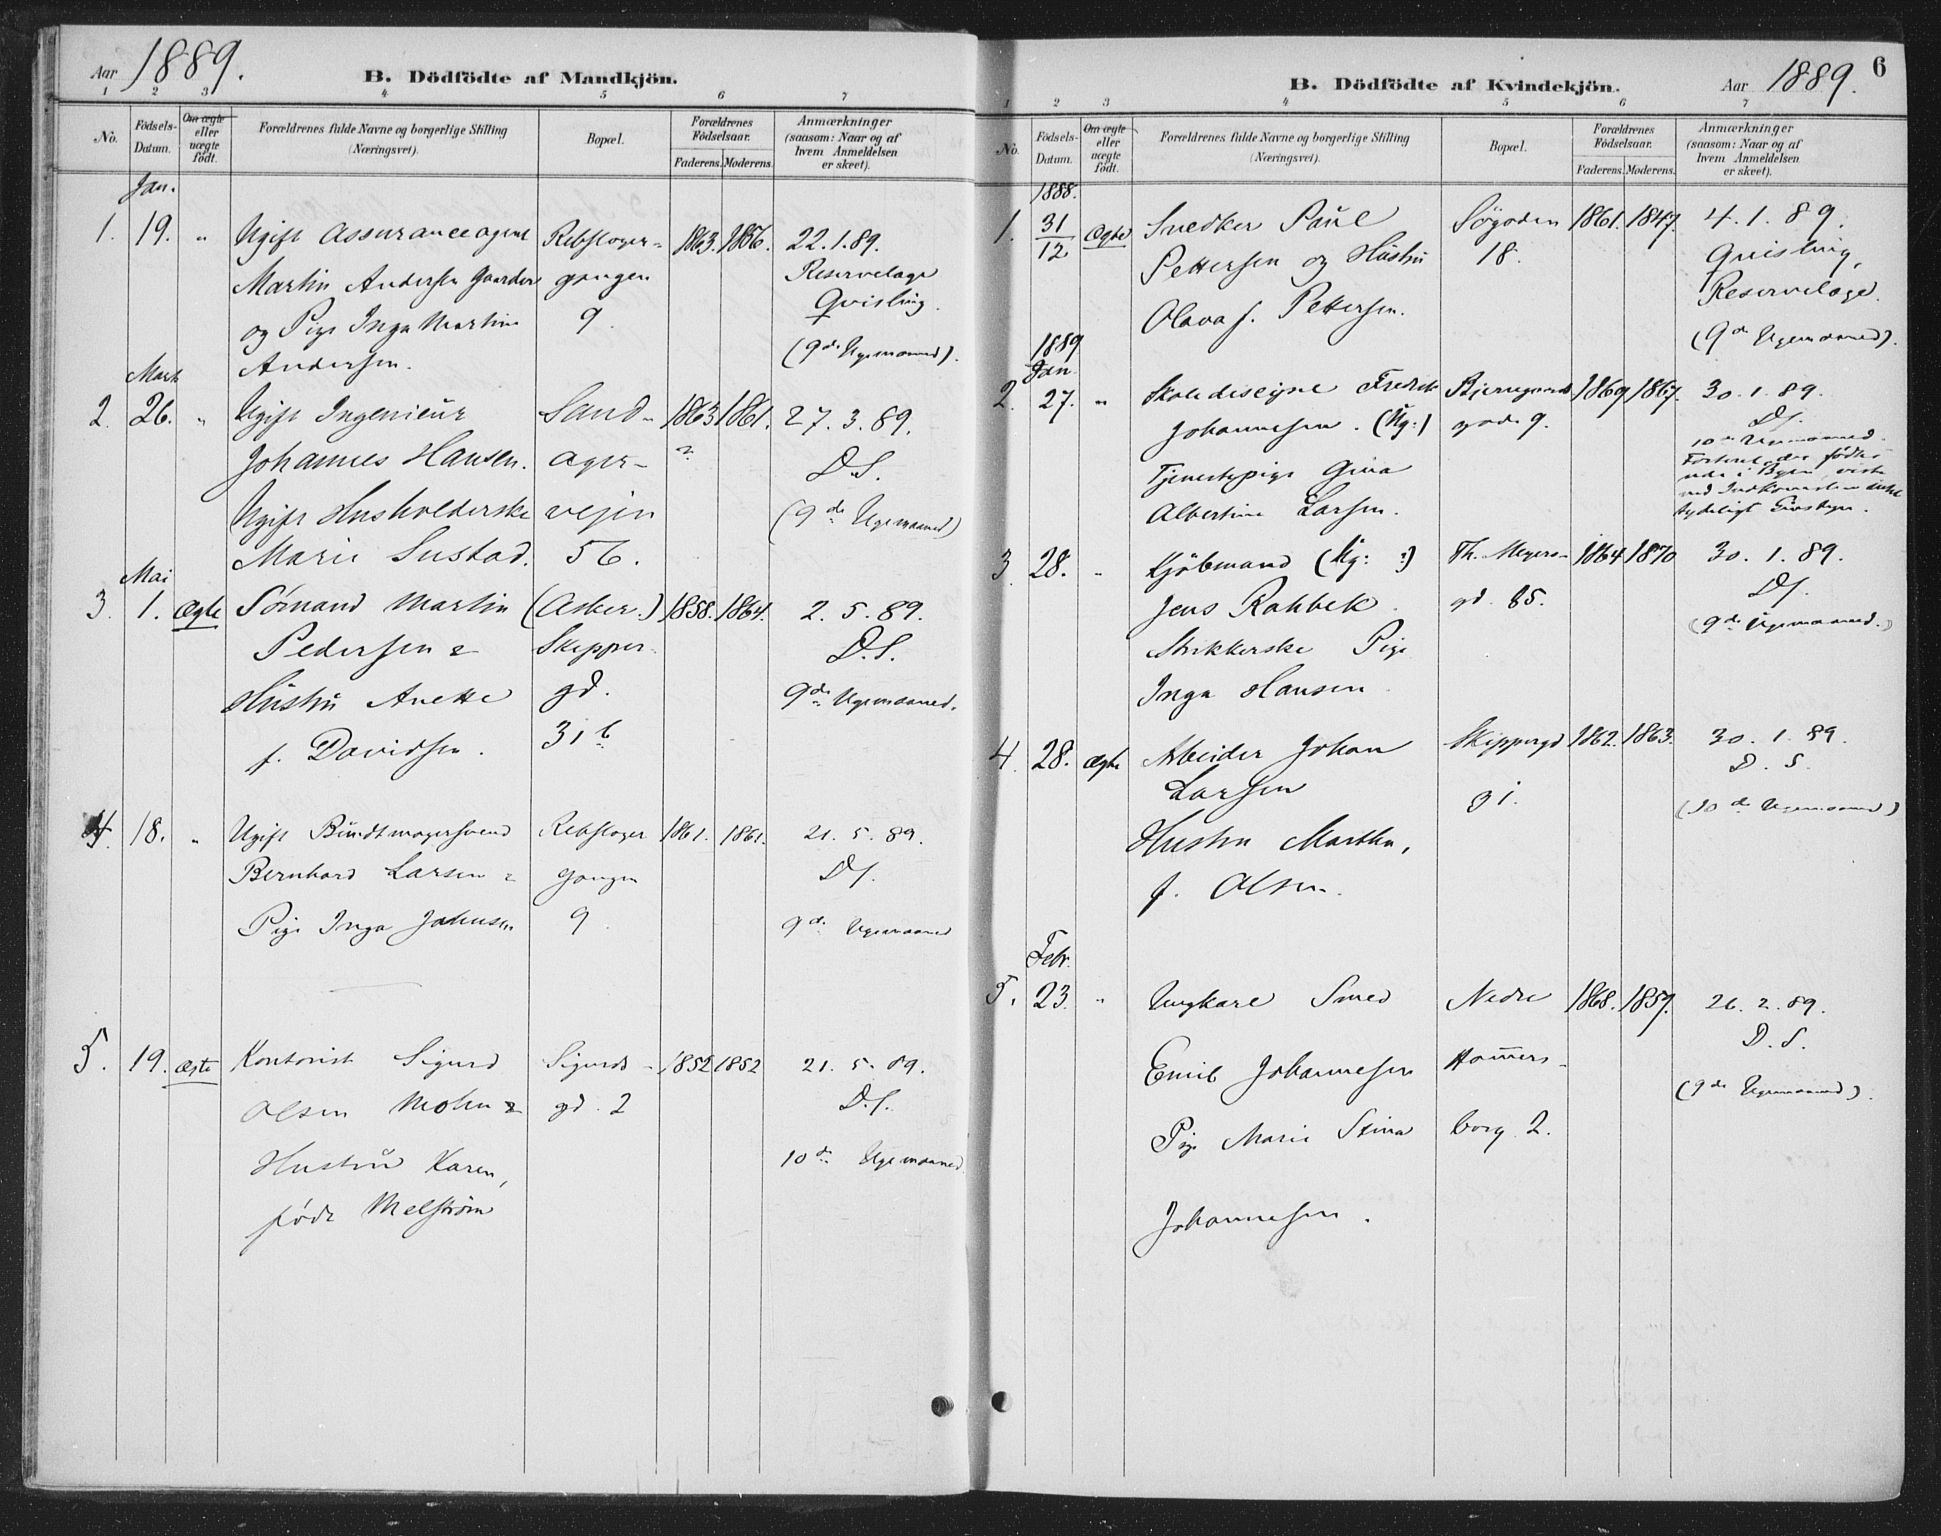 Aar 1889.
B. Dödfödte af Mandkjön.
1 2 3 4 5 6 7
No.
Födsels-Datum.
Om ægte eller uægte födt.
Forældrenes fulde Navne og borgerlige Stilling (Næringsvei).
Bopæl.
Forældrenes Födselsaar.
Faderens. Moderens.
Anmærkninger (saasom: Naar og af hvem Anmeldelsen er skeet).
Jan.
1. 19. " Ugift Assuranceagent Rebslager- 1863. 1856. 22.1.89.
Martin Andersen Gaarder gangen Reservelæge
og Pige Inga Martine 9. Qvisling.
Andersen. (9de Ugemaaned).
Marts
2. 26. " Ugift Ingenieur Sand- 1863 1861. 27.3.89.
Johannes Hansen. ager- ? D.S.
Ugift Husholderske veien (9de Ugemaaned)
Marie Sustad. 56.
Mai
3. 1. Ægte Sømand Martin (Asker.) 1858. 1864. 2.5.89.
Pedersen & Skipper- D.S.
Hustru Anette gd. 9de Ugemaaned.
f. Davidsen. 31 b
4. 18. " Ugift Bundtmagersvend Rebslager 1861. 1861. 21.5.89.
Bernhard Larsen & gangen D.S.
Pige Inga Johnsen 9. 9de Ugemaaned
5. 19. ægte Kontorist Sigurd Sigurds- 1852 1852 21.5.89.
Olsen Mohn & gd. 2 D.S.
Hustru Karen, 10de Ugemaaned
født Melstrøm
6
B. Dödfödte af Kvindekjön.
Aar 1889.
1 2 3 4 5 6 7
No.
Födsels-Datum.
Om ægte eller uægte födt.
Forældrenes fulde Navne og borgerlige Stilling (Næringsvei).
Bopæl.
Forældrenes Födselsaar.
Faderens. Moderens.
Anmærkninger (saasom: Naar og af hvem Anmeldelsen er skeet).
1888.
1. 31/12 Ægte Snedker Paul Søgaden 1861. 1847. 4.1.89.
Pettersen og Hustru 18. Qvisling,
Olava f. Pettersen. Reservelæge.
(9de Ugemaaned).
1889
Jan.
2. 27. " Fredrik Bjerregaards 1869 1867. 30.1.89.
Johannesen. (Ug:) gade 9. D.S.
Tjenestepige Gina 10de Ugemaaned.
Albertine Larsen.
tydeligt
3. 28. " Kjøbmand (Ug: ?) Th. Meyers- 1864 1870 30.1.89.
Jens Rahbek. gd. 85. D.S.
Strikkerske Pige (9de Ugemaaned.)
Inga Hansen
4. 28. Ægte Arbeider Johan Skippergd 1862. 1863. 30.1.89.
Larsen 31. D.S.
Hustru Marthe, (10de Ugemaaned)
f. Olsen.
Febr.
5. 23. " Ungkarl Smed Nedre 1868. 1857. 26.2.89.
Emil Johannesen Hammers- D.S.
Pige Marie Stina borg 2. (9de Ugemaaned).
Johannesen.